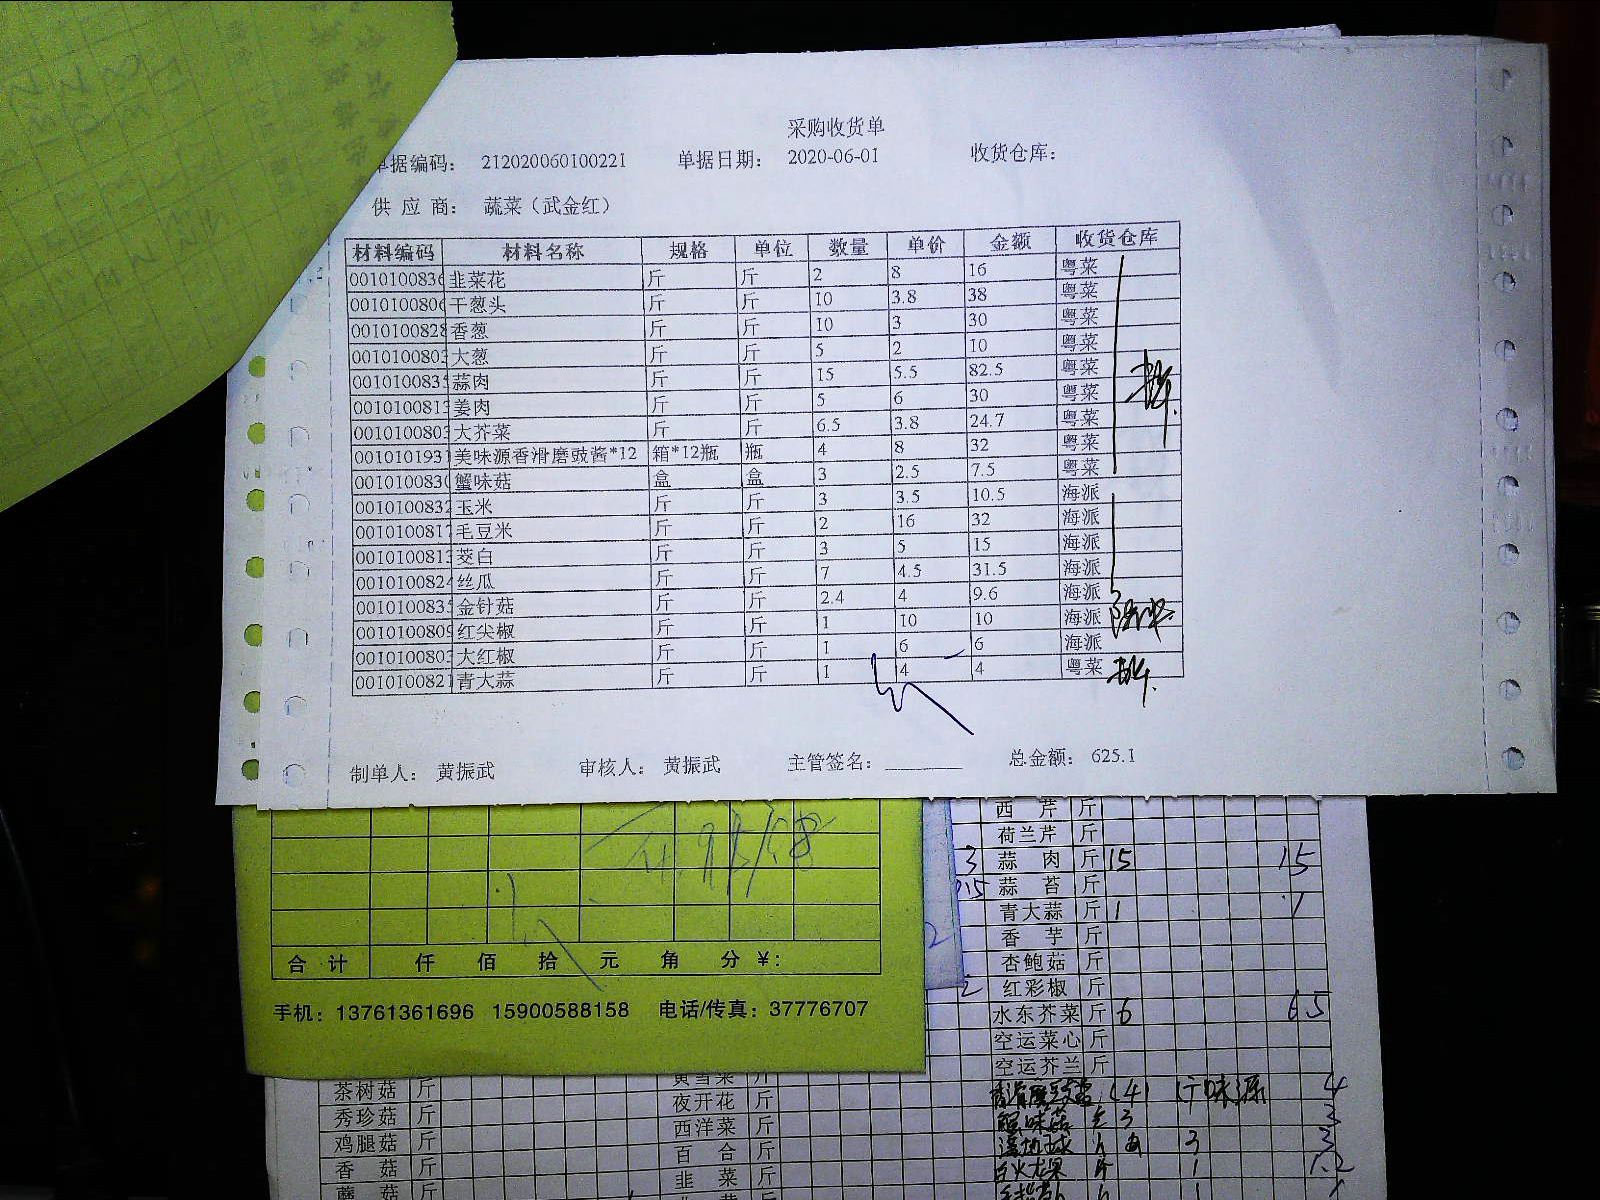 采购收货单
单据编码： 212020060100221 单据日期： 2020-06-01 收货仓库：
供 应 商： 蔬菜（武金红）
材料编码 材料名称 规格 单位 数量 单价 金额 收货仓库
0010100836 韭菜花 斤 斤 2 8 16 粤菜
0010100806 干葱头 斤 斤 10 3.8 38 粤菜
0010100828 香葱 斤 斤 10 3 30 粤菜
001010080 大葱 斤 斤 5 2 10 粤菜
001010083 蒜肉 斤 斤 15 5.5 82.5 粤菜
001010081 姜肉 斤 斤 5 6 30 粤菜
001010080 大芥菜 斤 斤 6.5 3.8 24.7 粤菜
001010193 美味源香滑磨豉酱*12 箱*12瓶 瓶 4 8 32 粤菜
001010083 蟹味菇 盒 盒 3 2.5 7.5 粤菜
001010083 玉米 斤 斤 3 3.5 10.5 海派
001010081 毛豆米 斤 斤 2 16 32 海派
001010081 茭白 斤 斤 3 5 15 海派
001010082 丝瓜 斤 斤 7 4.5 31.5 海派
001010083 金针菇 斤 斤 2.4 4 9.6 海派
001010080 红尖椒 斤 斤 1 10 10 海派
001010080 大红椒 斤 斤 1 6 6 海派
001010082 青大蒜 斤 斤 1 4 4 粤菜
制单人： 黄振武 审核人： 黄振武 主管签名： 总金额： 625.1
合 计 仟 佰 拾 元 角 分 ¥:
手机：13761361696 15900588158 电话/传真：37776707
西 芹 斤
荷兰芹 斤
3 蒜 肉 斤 15 15
蒜 苔 斤
青大蒜 斤 1 1
香 芋 斤
杏鲍菇 斤
2 红彩椒 斤
水东芥菜 斤 6 6.5
空运菜心 斤
空运芥兰 斤
茶树菇 斤 黄雪菜 斤
秀珍菇 斤 夜开花 斤
鸡腿菇 斤 西洋菜 斤
香 菇 斤 百 合 斤
蘑 菇 斤 韭 菜 斤
(4) 味源 4
蟹味菇 3 3
3 3
1 1.2